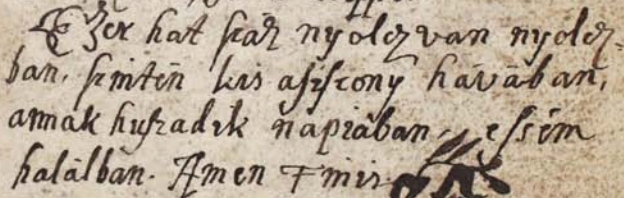 Ezer hat száz nyolczvan nyolcz-
ban, szintén kis aszszony havában,
annak huszadik napiában, essém
halálban. Amen Finis